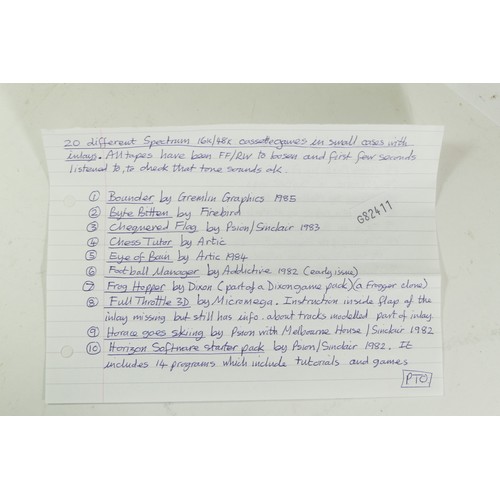 20 different Spectrum 16k/48k cassette games in small cases with
inlays. All tapes have been FF/RW to loosen and first few seconds
listened to, to check that tone sounds ok.
① Bounder by Gremlin Graphics 1985
② Byte Bitten by Firebird
③ Chequered Flag by Psion/Sinclair 1983
④ Chess Tutor by Artic
⑤ Eye of Bain by Artic 1984
⑥ Football Manager by Addictive 1982 (early issue)
⑦ Frog Hopper by Dixon (part of a Dixon game pack) (a Frogger clone)
⑧ Full Throttle 3D by Micromega. Instruction inside flap of the
inlay missing but still has info. about tracks modelled part of inlay.
⑨ Horace goes skiing by Psion with Melbourne House / Sinclair 1982
⑩ Horizon Software starter pack by Psion/Sinclair 1982. It
includes 14 programs which include tutorials and games
PTO
G82411